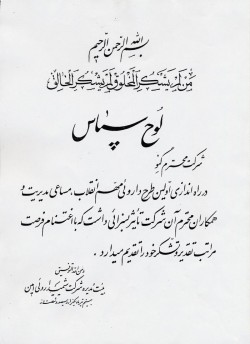 بسم الله الرحمن الرحیم
من لم یشکر المخلوق لم یشکر الخالق
لوح سپاس
شرکت محترم
در راه اندازی اولین طرح دارویی انقلاب، مساعی مدیریت و
همکاران محترم آن شرکت تأثیر بسزائی داشت که با اغتنام فرصت
مراتب تقدیر و تشکر خود را تقدیم میدارد.
و من الله التوفیق
هیئت مدیره شرکت شهید